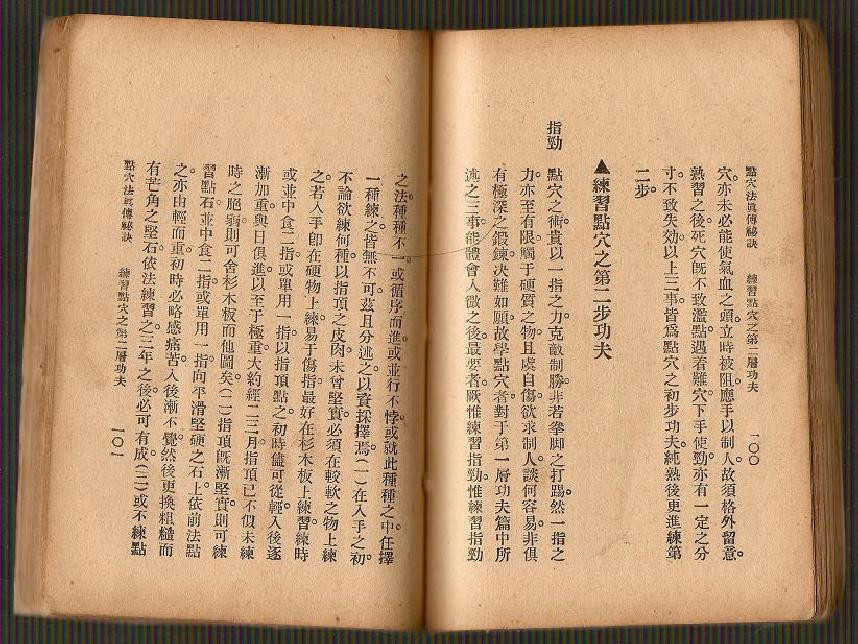 點穴法眞傳秘訣 練習點穴之第二層功夫 一〇〇
穴。亦未必能使氣血之頭。立時被阻。應手以制人。故須格外留意。
熟習之後。死穴旣不致濫點。遇着難穴。下手使勁。亦有一定之分
寸。不致失効。以上三事。皆爲點穴之初步功夫。純熟後更進練第
二步。
▲練習點穴之第二步功夫
指勁 點穴之術。貴以一指之力。克敵制勝。非若拳脚之打踢。然一指之
力。亦至有限。觸于硬質之物。且虞自傷。欲求制人。談何容易。非俱
有極深之鍛鍊。决難如願。故學點穴者。對于第一層功夫篇中所
述之三事。能體會入微之後。最要者。厥惟練習指勁。惟練習指勁
之法。種種不一。或循序而進。或並行不悖。或就此種種之中。任擇
一種練之。皆無不可。茲且分述之。以資採擇焉。(一)在入手之初。
不論欲練何種。以指頂之皮肉。未曾堅實。必須在較軟之物上練
之。若入手卽在硬物上練。易于傷指。最好在杉木板上練習。練時
或並中食二指。或單用一指。以指頂點之。初時儘可從輕。入後逐
漸加重。與日俱進。以至于極重。大約經二三月。指頂已不似未練
時之脆弱。則可舍杉木板而他圖矣。(二)指頂旣漸堅實。則可練
習點石。並中食二指。或單用一指。向平滑堅硬之石上。依前法點
之。亦由輕而重。初時必略感痛苦。入後漸不覺。然後更換粗糙而
有芒角之堅石。依法練習之。三年之後。必可有成。(三)或不練點
點穴法眞傳秘訣 練習點穴之第二層功夫 一〇一